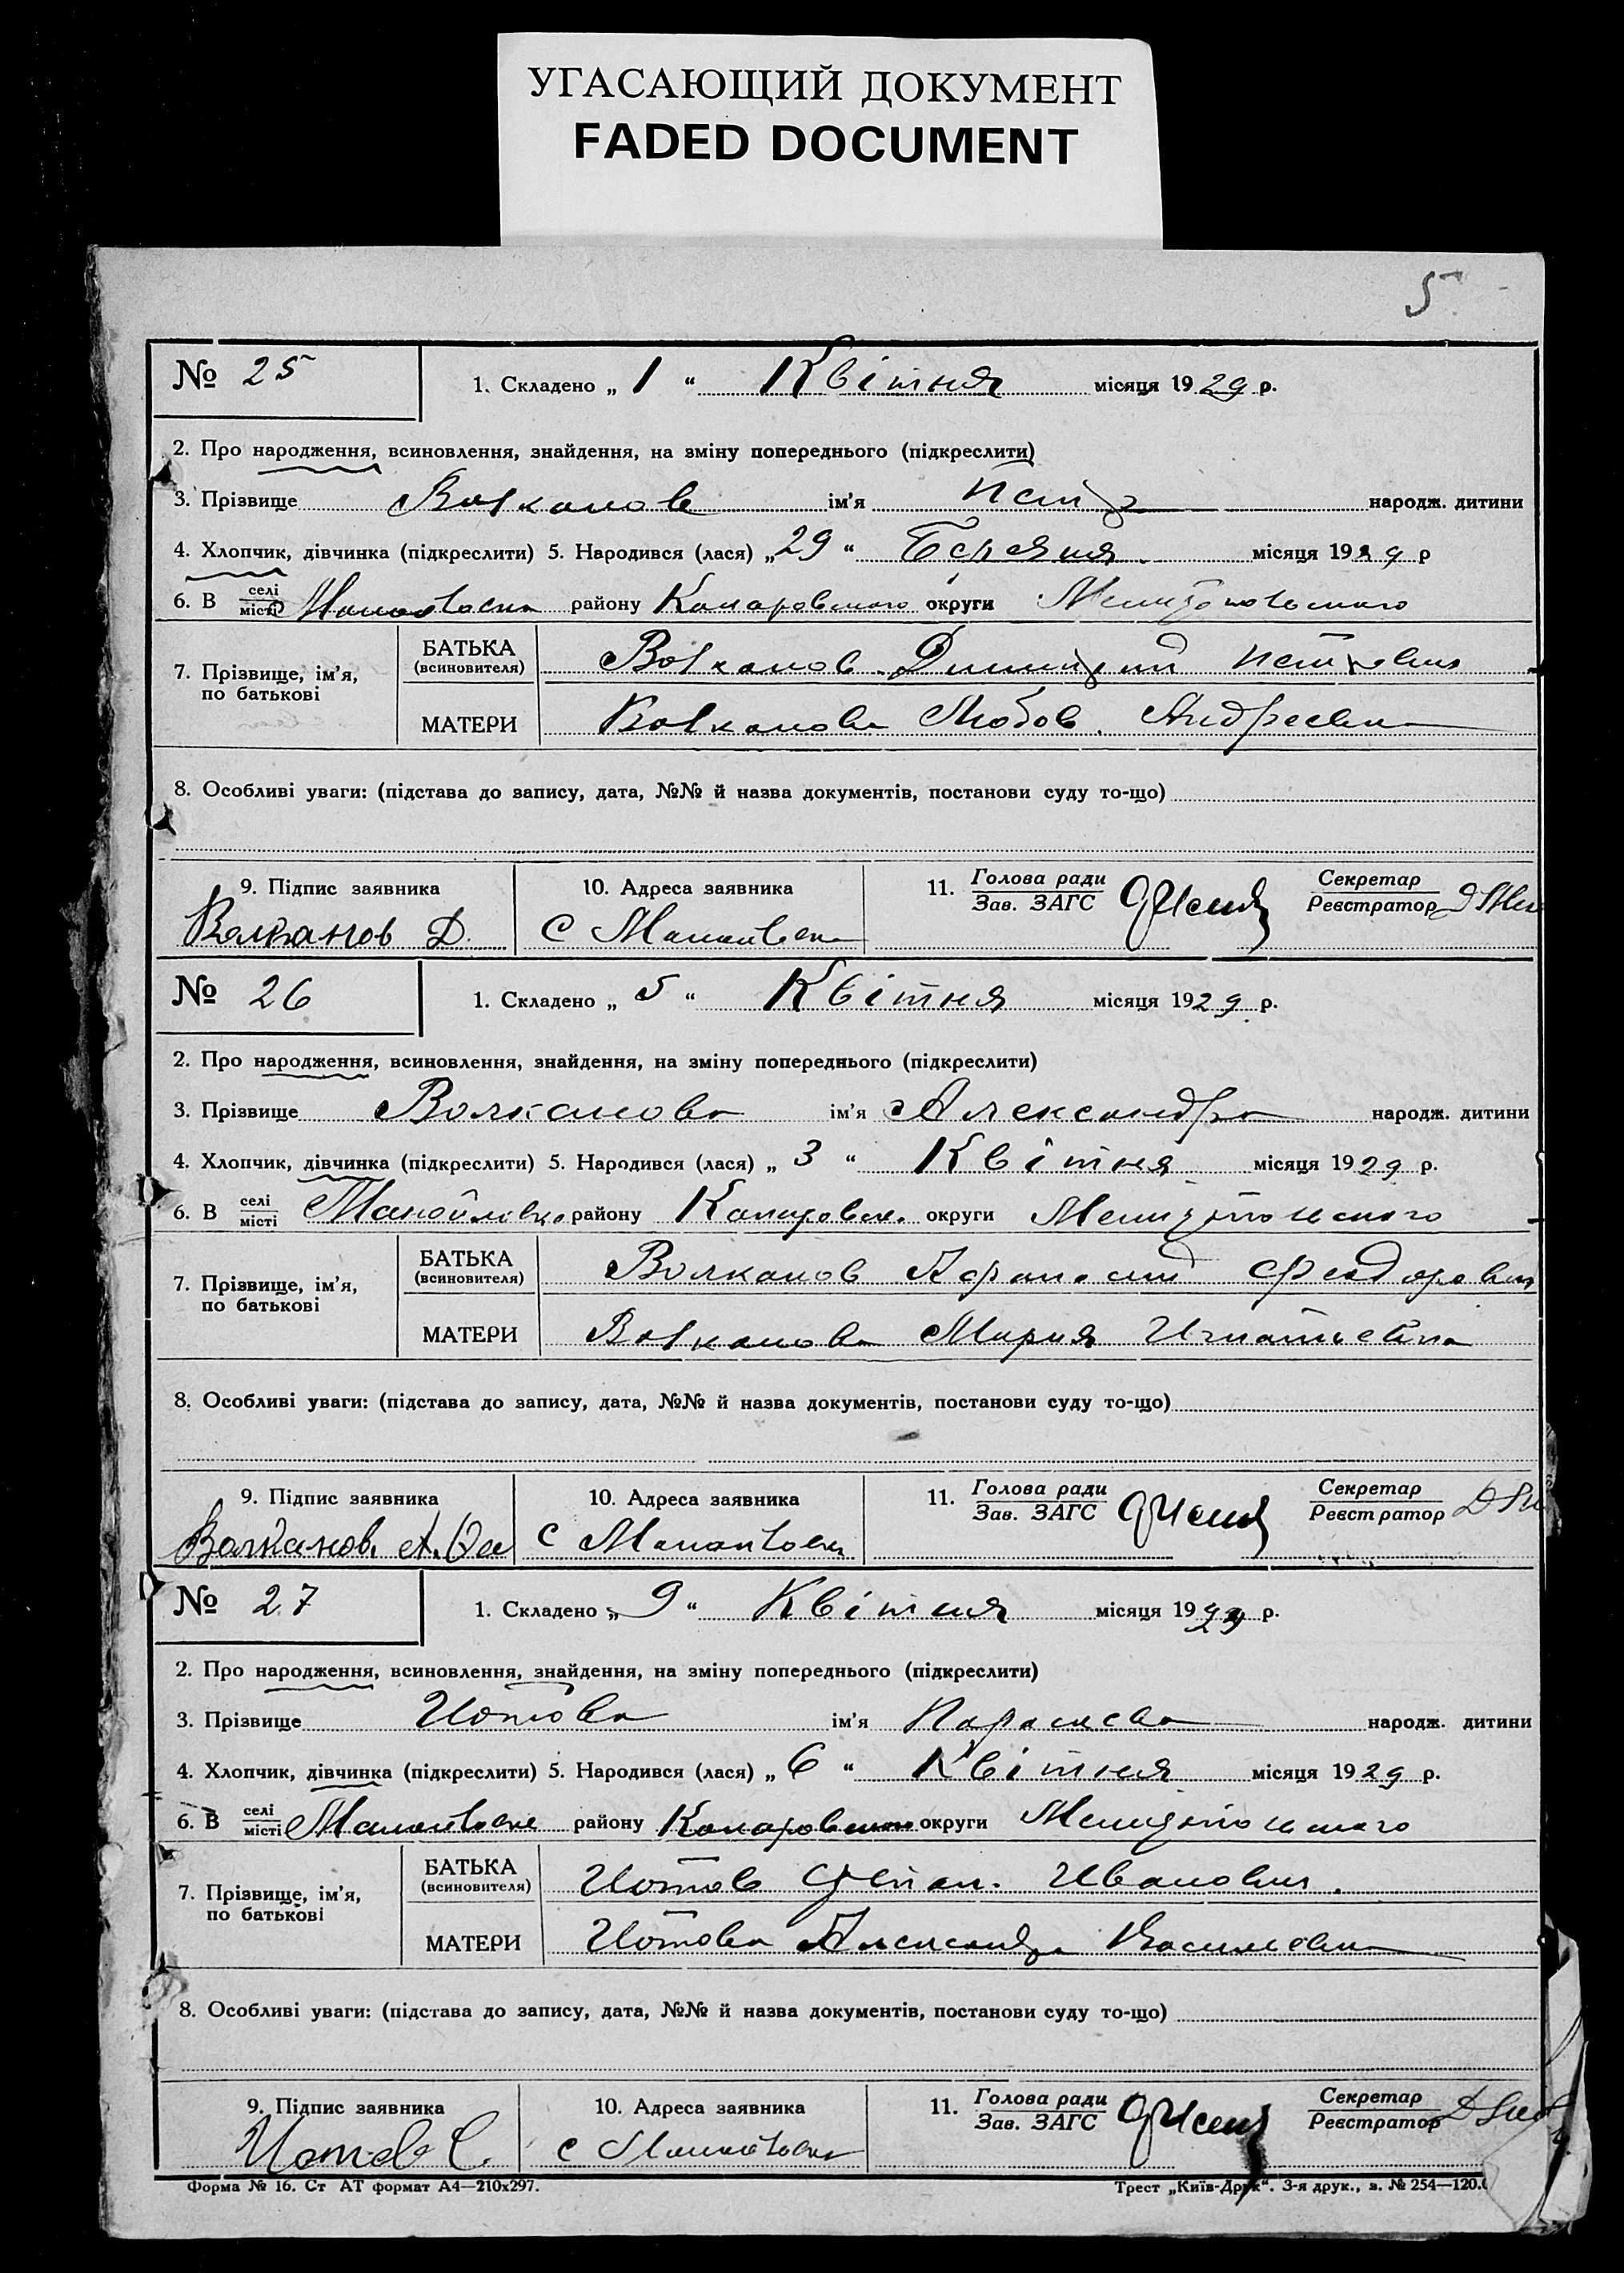 УГАСАЮЩИЙ ДОКУМЕНТ
FADED DOCUMENT
5
№ 25 1. Складено „ 1 “ Квітня місяця 1929 р.
2. Про народження, всиновлення, знайдення, на зміну попереднього (підкреслити)
3. Прізвище Волканов ім’я Петр народж. дитини
4. Хлопчик, дівчинка (підкреслити) 5. Народився (лася) „ 29 “ Березня місяця 1929 р
6. В селі/місті району округи
7. Прізвище, ім’я, по батькові
БАТЬКА (всиновителя) Волканов Дмитрий Петрович
МАТЕРИ Волканова Любов Андреевна
8. Особливі уваги: (підстава до запису, дата, №№ й назва документів, постанови суду то-що)
9. Підпис заявника 10. Адреса заявника 11. Голова ради/Зав. ЗАГС Секретар/Реєстратор
Волканов Д. С
№ 26 1. Складено „ 5 “ Квітня місяця 1929 р.
2. Про народження, всиновлення, знайдення, на зміну попереднього (підкреслити)
3. Прізвище Волканова ім’я Александра народж. дитини
4. Хлопчик, дівчинка (підкреслити) 5. Народився (лася) „ 3 “ Квітня місяця 1929 р.
6. В селі/місті Манойловка району округи
7. Прізвище, ім’я, по батькові
БАТЬКА (всиновителя) Волканов Афанасий Федорович
МАТЕРИ Волканова Мария Игнатьевна
8. Особливі уваги: (підстава до запису, дата, №№ й назва документів, постанови суду то-що)
9. Підпис заявника 10. Адреса заявника 11. Голова ради/Зав. ЗАГС Секретар/Реєстратор
Волканов. А. С
№ 27 1. Складено „ 9 “ Квітня місяця 1929 р.
2. Про народження, всиновлення, знайдення, на зміну попереднього (підкреслити)
3. Прізвище Иотова ім’я народж. дитини
4. Хлопчик, дівчинка (підкреслити) 5. Народився (лася) „ 6 “ Квітня місяця 1929 р.
6. В селі/місті району округи
7. Прізвище, ім’я, по батькові
БАТЬКА (всиновителя) Иотов Степан. Иванович.
МАТЕРИ Иотова Александра Василевна
8. Особливі уваги: (підстава до запису, дата, №№ й назва документів, постанови суду то-що)
9. Підпис заявника 10. Адреса заявника 11. Голова ради/Зав. ЗАГС Секретар/Реєстратор
Иотов С. с
Форма № 16. Ст АТ формат А4—210x297. Трест „Київ-Друк“. 3-я друк., з. № 254—120.